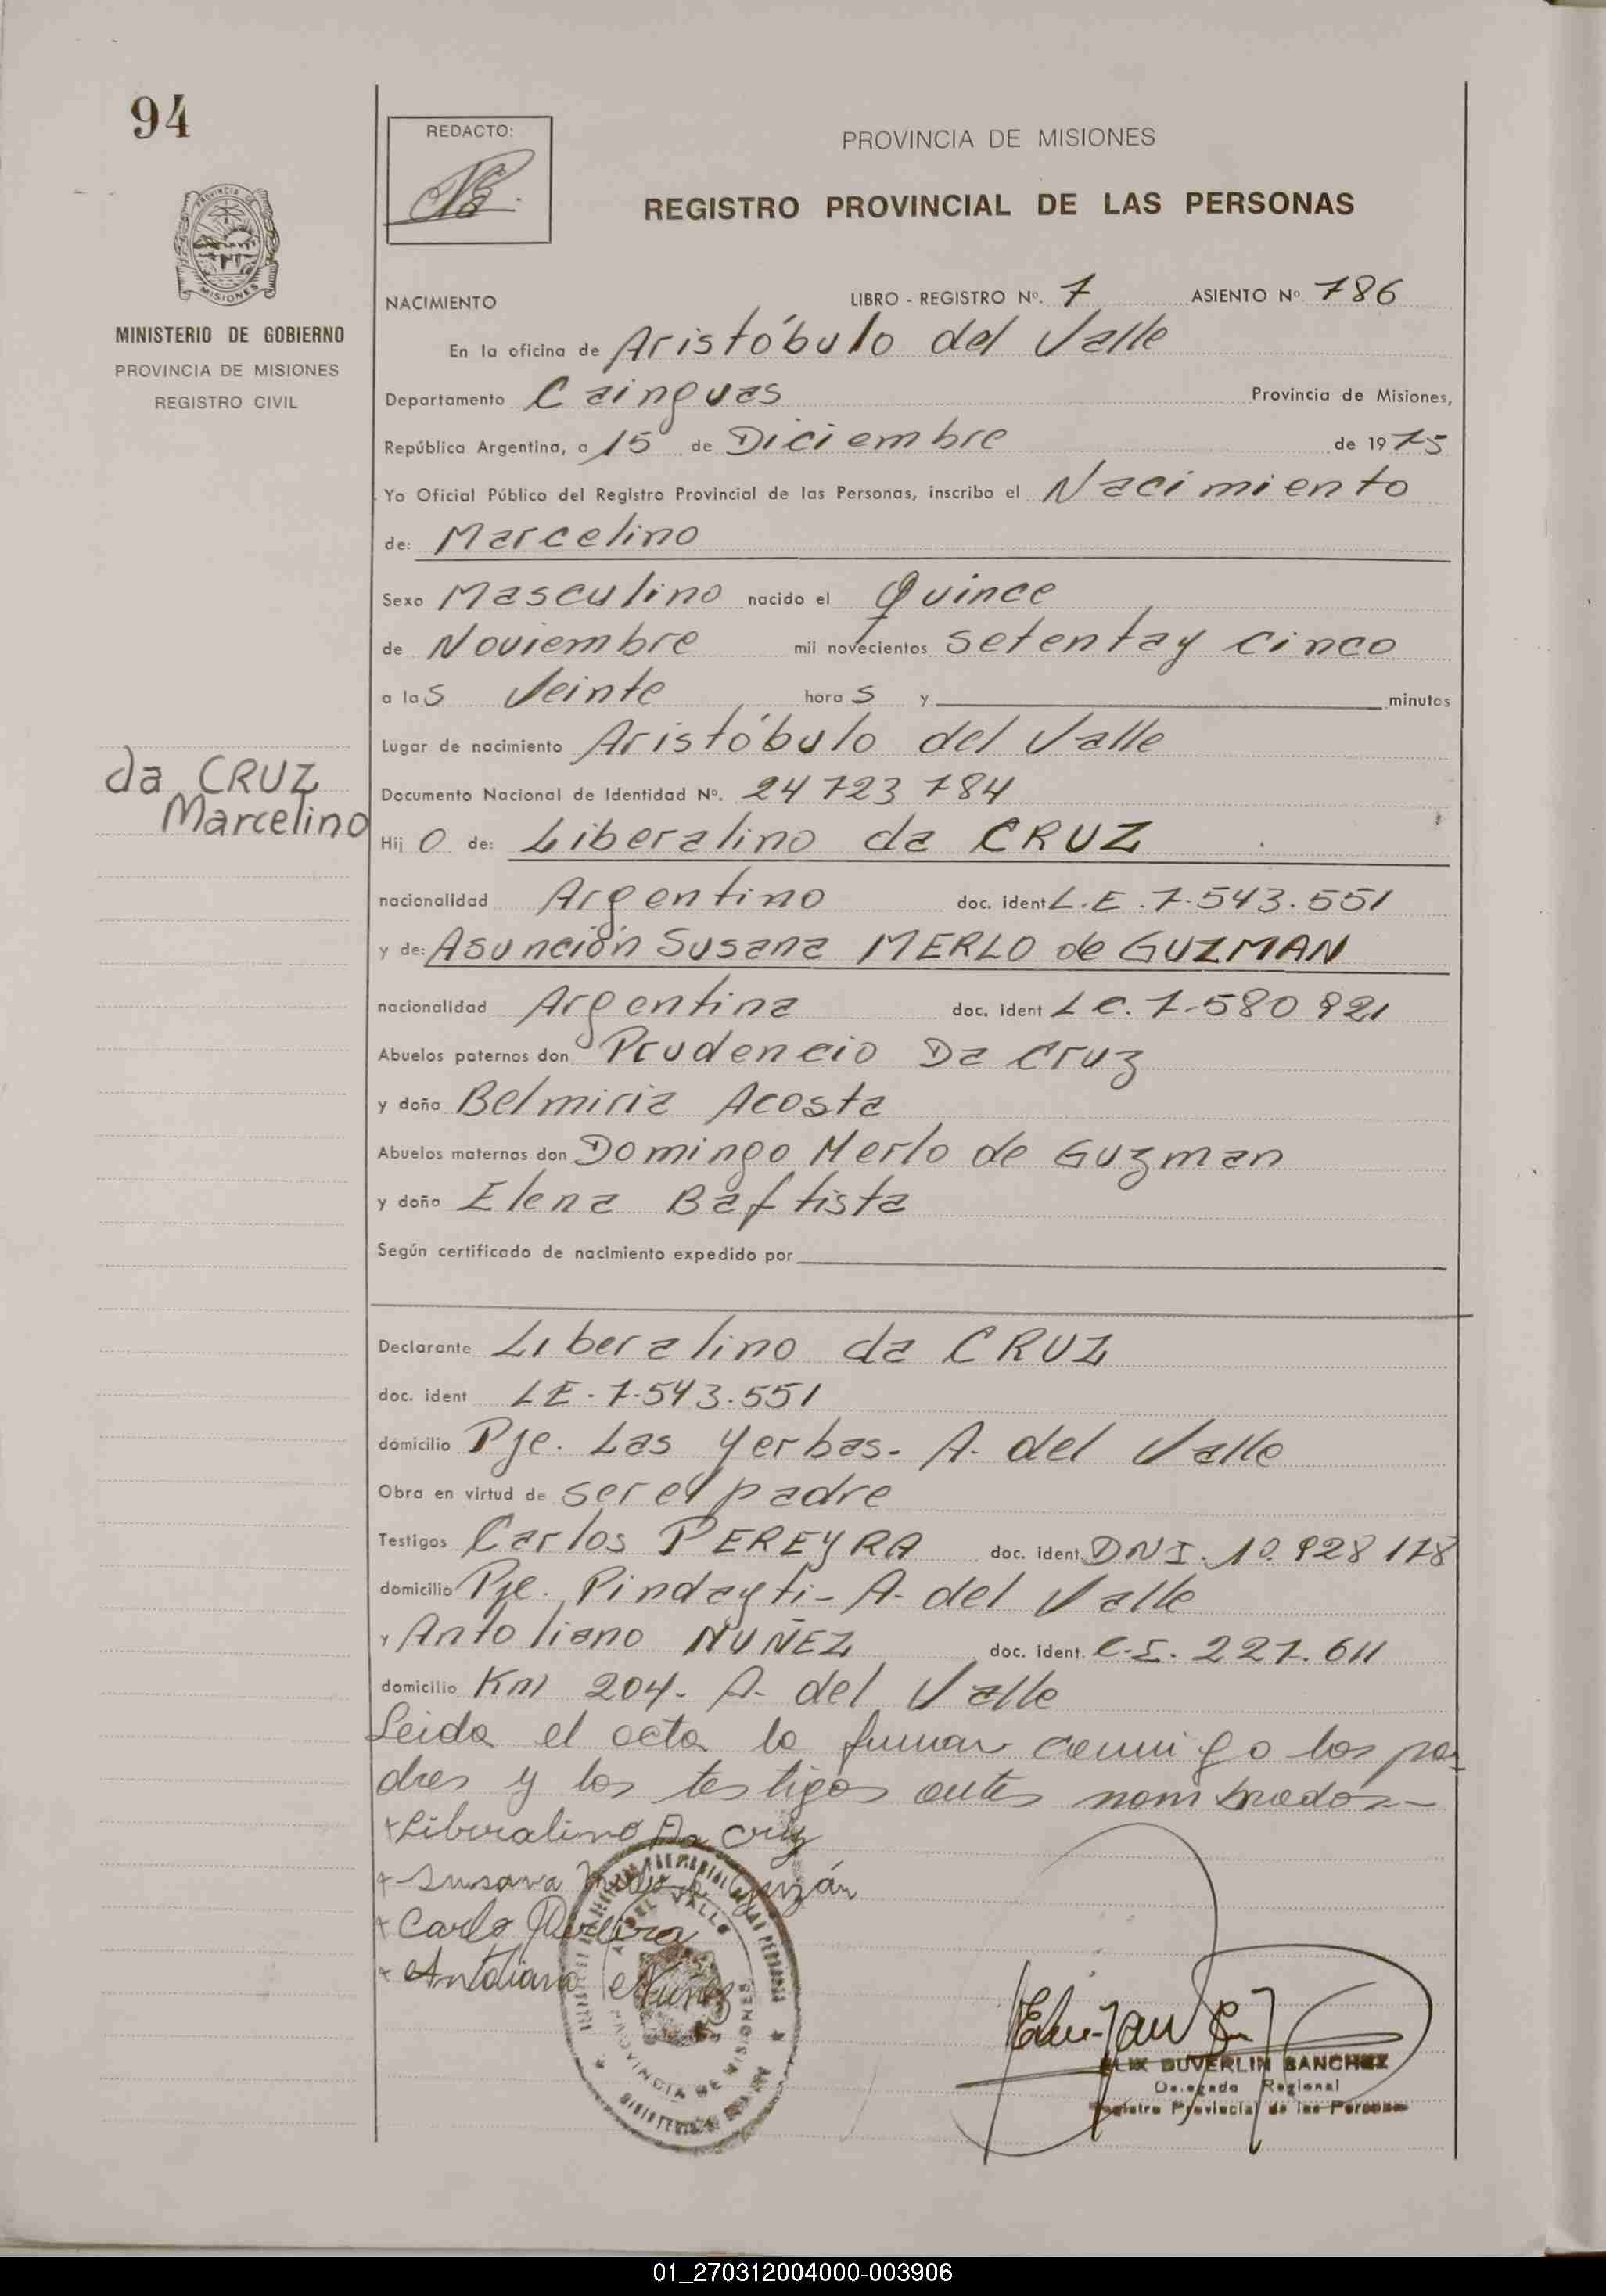 94
REDACTO:
PROVINCIA DE MISIONES
REGISTRO PROVINCIAL DE LAS PERSONAS
MISIONES
MINISTERIO DE GOBIERNO
PROVINCIA DE MISIONES
REGISTRO CIVIL
NACIMIENTO LIBRO - REGISTRO Nº. 7 ASIENTO Nº 786
En la oficina de Aristóbulo del Valle
Departamento Cainguas Provincia de Misiones,
República Argentina, a 15 de Diciembre de 1975
Yo Oficial Público del Registro Provincial de las Personas, inscribo el Nacimiento
de: Marcelino
Sexo Masculino nacido el Quince
de Noviembre mil novecientos setenta y cinco
a las Veinte horas y minutos
Lugar de nacimiento Aristóbulo del Valle
da CRUZ
Marcelino
Documento Nacional de Identidad Nº. 24 723 784
Hijo de: Liberalino da CRUZ
nacionalidad Argentino doc. ident L.E. 7.543.551
y de: Asunción Susana MERLO de GUZMAN
nacionalidad Argentina doc. ident L C. 7.580 921
Abuelos paternos don Prudencio Da Cruz
y doña Belmiria Acosta
Abuelos maternos don Domingo Merlo de Guzman
y doña Elena Baftista
Según certificado de nacimiento expedido por
Declarante Liberalino da CRUZ
doc. ident LE. 7.543.551
domicilio Pje. Las Yerbas. A. del Valle
Obra en virtud de ser el padre
Testigos Carlos PEREYRA doc. ident. DNI. 10.928 178
domicilio Pje. Pindayti - A. del Valle
y Antoliano NUÑEZ doc. ident. C.I. 227.611
domicilio Km 204. A. del Valle
Leida el acta la firman conmigo los pa-
dres y los testigos antes nombrados.-
Liberalino Da Cruz
Susana Guzán
Carlo Pereira
Antoliano Núñez
DEL VALLE
PROVINCIA DE MISIONES
ELIX DUVERLIN SANCHEZ
Delegado Regional
Registro Provincial de las Personas
01_270312004000-003906